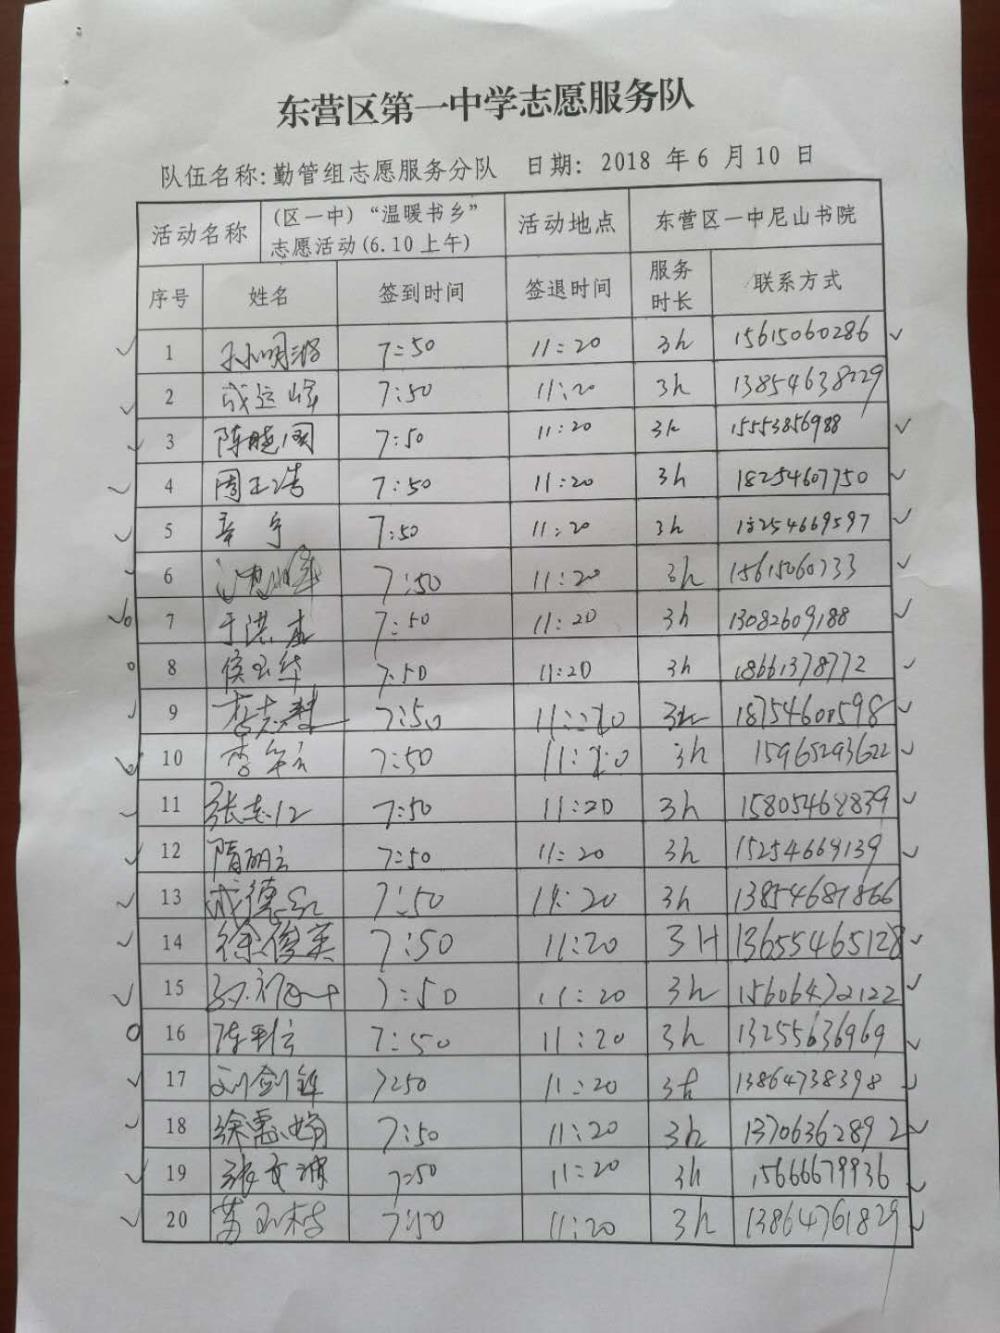 东营区第一中学志愿服务队
队伍名称:勤管组志愿服务分队 日期: 2018 年 6 月 10 日
活动名称 (区一中) “温暖书乡” 活动地点 东营区一中尼山书院
志愿活动(6.10上午)
序号 姓名 签到时间 签退时间 服务时长 联系方式
1 7:50 11:20 3h 15615060286
2 成运峰 7:50 11:20 3h 13854638229
3 陈晓国 7:50 11:20 3h 15553856988
4 周玉浩 7:50 11:20 3h 18254607750
5 辛宁 7:50 11:20 3h 18254669597
6 7:50 11:20 3h 15615060733
7 于洪杰 7:50 11:20 3h 13082609188
8 侯玉华 7:50 11:20 3h 18661378772
9 李志慧 7:50 11:20 3h
10 李 7:50 11:20 3h 15965293622
11 张志仁 7:50 11:20 3h 15805468839
12 隋明云 7:50 11:20 3h 15254669139
13 成德 7:50 11:20 3h 13854687866
14 徐俊英 7:50 11:20 3H 13655465128
15 7:50 11:20 3h 15606472122
16 陈 云 7:50 11:20 3h 13255636969
17 刘剑锋 7:50 11:20 3h 13864738398
18 徐惠娟 7:50 11:20 3h 13706362892
19 张文波 7:50 11:20 3h 15666679936
20 苏 7:50 11:20 3h 13864761829